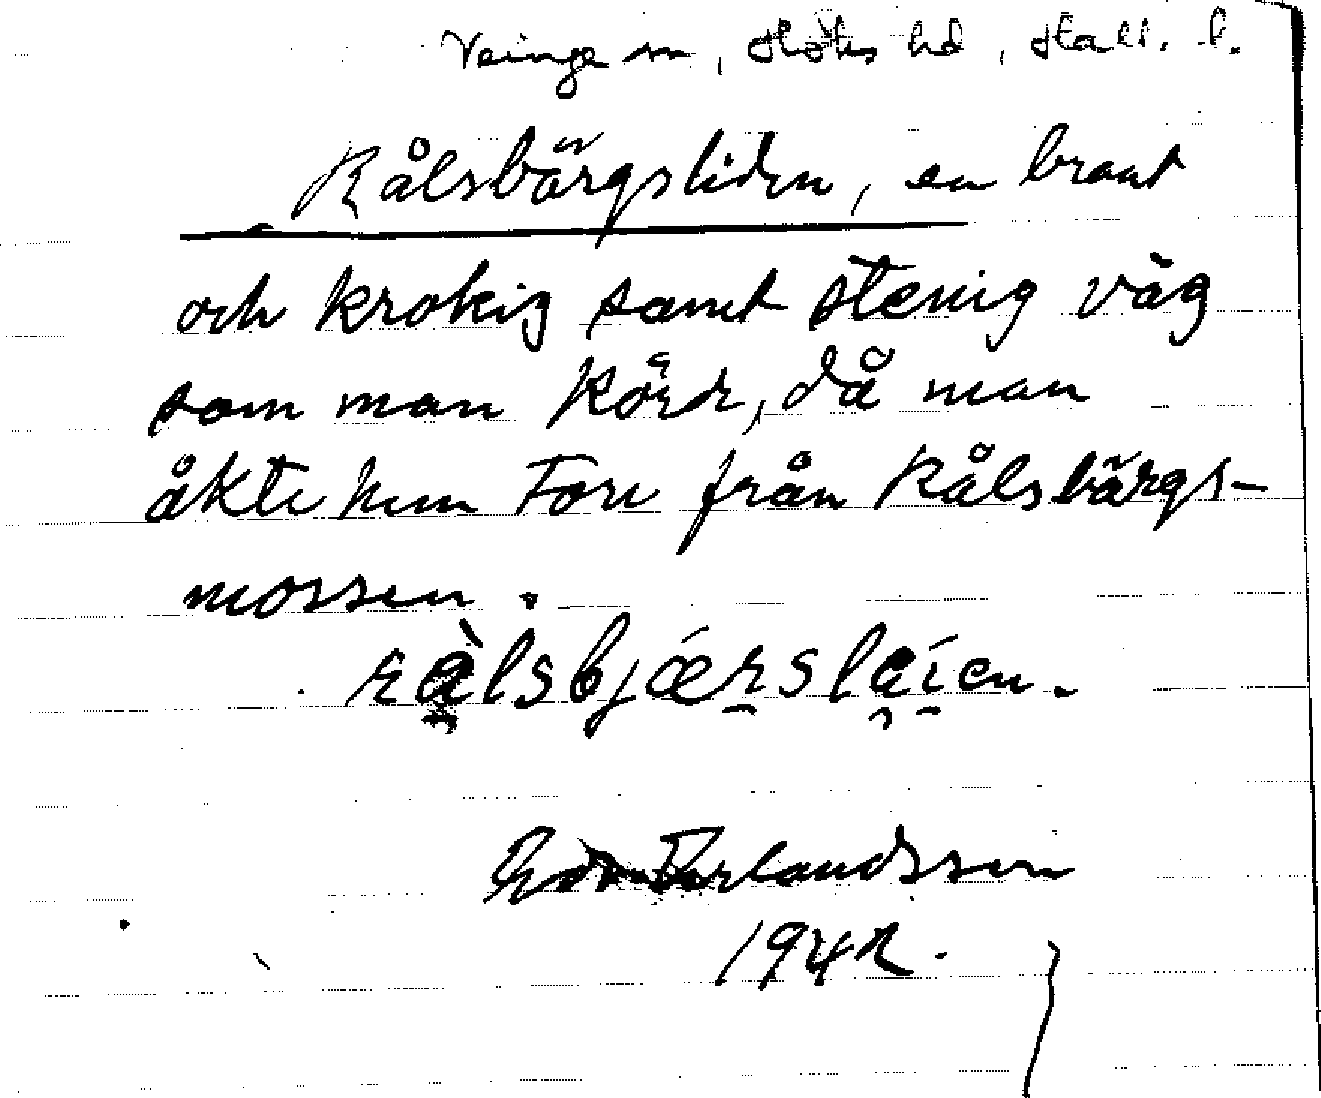 Veinge sn, Höks hd, Hall. l.
Rålsbärgsliden, en brant
och krokig samt stenig väg
som man körde, då man
åkte hem Torv från Rålsbärgs-
mossen.
rålsbjǽrslaíen.
Erlandsson
1942.